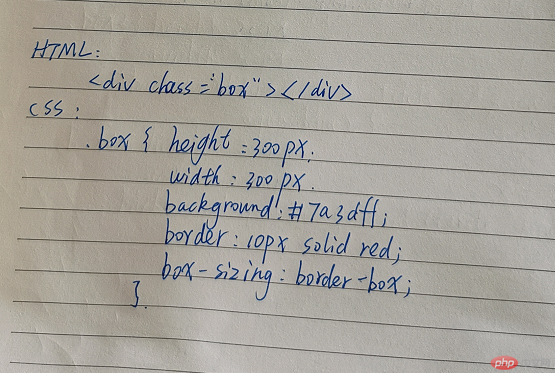 HTML:
<div class="box"></div>
css:
.box { height:300px;
width:300px.
background:#7a3dff;
border:10px solid red;
box-sizing:border-box;
}.
php